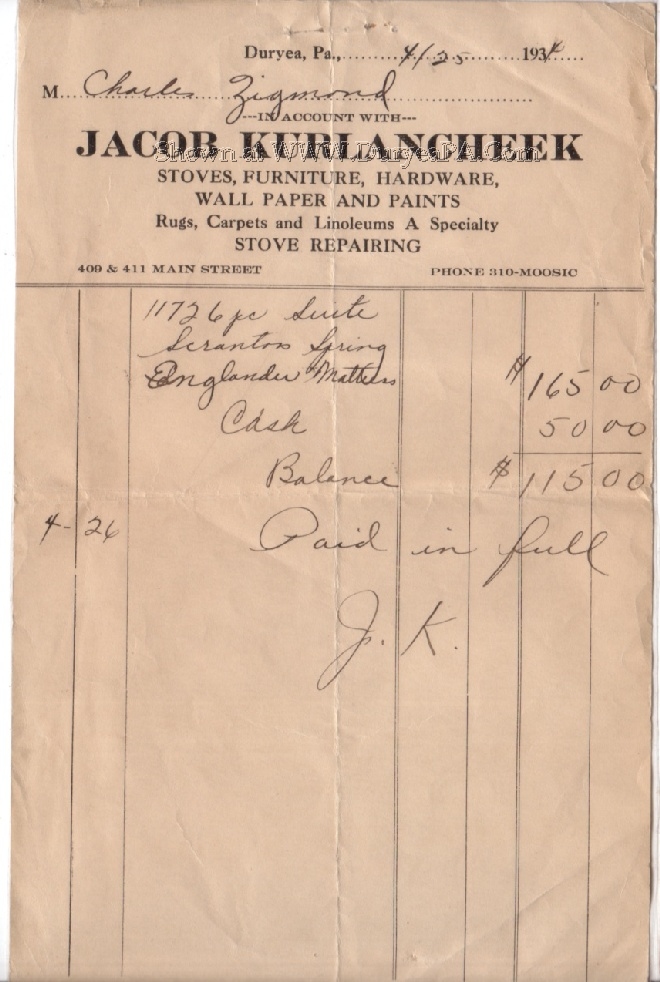 Duryea, Pa., 4/25 1934
M Charles Zigmond
---IN ACCOUNT WITH---
JACOB KERLANCHEEK
Shown at WWW.DuryeaPA.Com
STOVES, FURNITURE, HARDWARE,
WALL PAPER AND PAINTS
Rugs, Carpets and Linoleums A Specialty
STOVE REPAIRING
409 & 411 MAIN STREET PHONE 310-MOOSIC
11726 pc Suite
Scranton Spring
Englander Mattress $165 00
Cash 50 00
Balance $115 00
4-26 Paid in full
J. K.